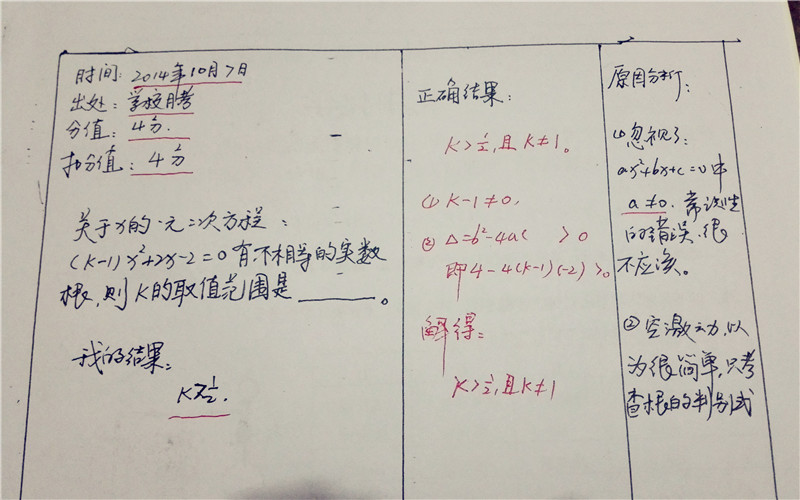 时间: 2014年10月7日
出处: 学校月考
分值: 4分.
扣分值: 4分
关于x的一元二次方程:
(K-1)x²+2x-2=0有不相等的实数
根,则K的取值范围是______。
我的结果:
K≥1/2.
正确结果:
K>1/2,且K≠1。
(1) K-1≠0,
② Δ=b²-4ac >0
即4-4(K-1)(-2)>0
解得:
K>1/2,且K≠1
原因分析:
(1)忽视了:
ax²+bx+c=0中
a≠0.常识性
的错误,很
不应该。
②空激动,以
为很简单,只考
查根的判别式